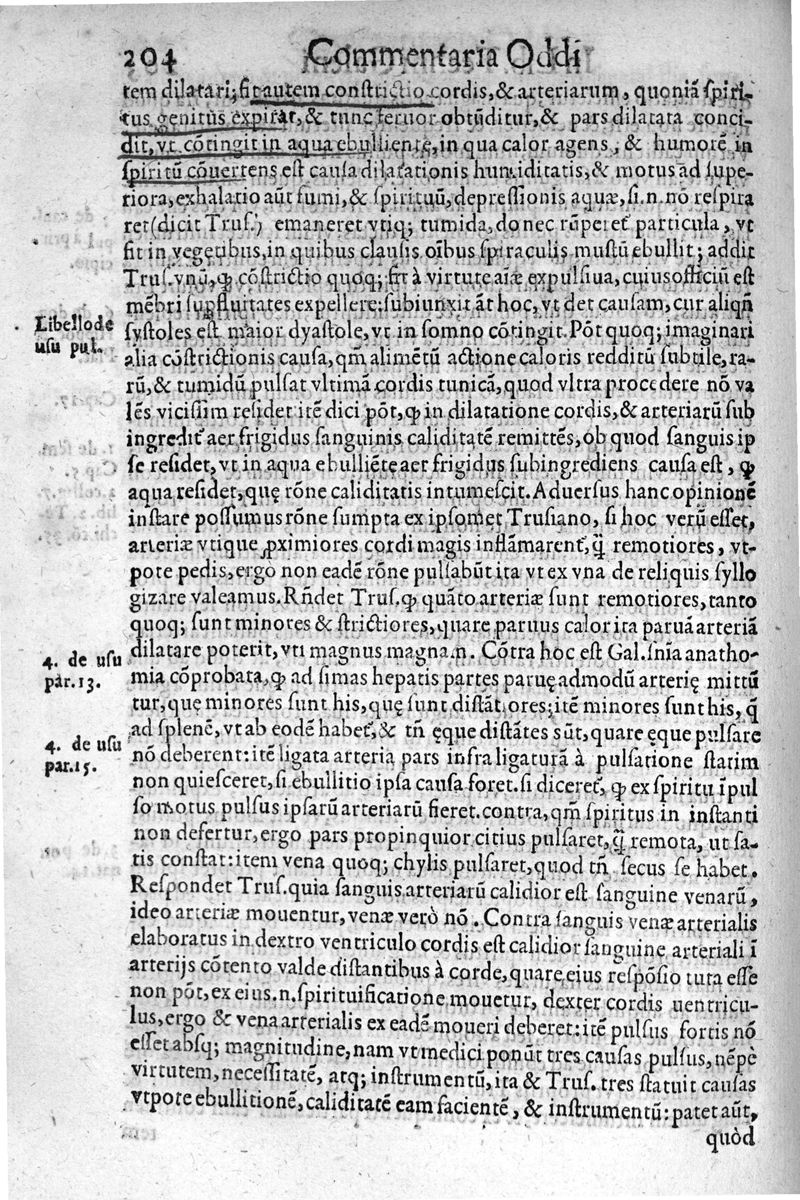 204 Commentaria Oddi
tem dilatari; fit autem constrictio cordis, & arteriarum, quoniā spiri-
tus genitus expirat, & tunc feruor obtūditur, & pars dilatata conci-
dit, vt cōtingit in aqua ebulliente, in qua calor agens, & humorē in
spiritū cōuertens est causa dilatationis humiditatis, & motus ad supe-
riora, exhalatio aūt fumi, & spirituū, depressionis aquæ, si .n. nō respira
ret (dicit Trus.) emaneret vtiq; tumida, donec rūperet' particula, vt
fit in vegetibus, in quibus clausis oībus spiraculis mustū ebullit; addit
Trus. vnū, ꝙ cōstrictio quoq; fit à virtute aīæ expulsiua, cuius officiū est
mēbri supfluitates expellere: subiunxit āt hoc, vt det causam, cur aliqñ
Libello de
usu pul.
systoles est maior dyastole, vt in somno cōtingit. Pōt quoq; imaginari
alia cōstrictionis causa, qm̄ alimētū actione caloris redditū subtile, ra-
rū, & tumidū pulsat vltimā cordis tunicā, quod vltra procedere nō va
lēs vicissim residet itē dici pōt, ꝙ in dilatatione cordis, & arteriarū sub
ingredit' aer frigidus sanguinis caliditatē remittēs, ob quod sanguis ip
se residet, vt in aqua ebulliēte aer frigidus subingrediens causa est, ꝙ
aqua residet, quę rōne caliditatis intumescit. Aduersus hanc opinionē
instare possumus rōne sumpta ex ipsomet Trusiano, si hoc verū esset,
arteriæ vtique ꝓximiores cordi magis inflāmarent', q̄ remotiores, vt-
pote pedis, ergo non eadē rōne pulsabūt ita vt ex vna de reliquis syllo
gizare valeamus. Rñdet Trus. ꝙ quāto arteriæ sunt remotiores, tanto
quoq; sunt minores & strictiores, quare paruus calor ita paruā arteriā
4. de usu
par. 13.
dilatare poterit, vti magnus magnam. Cōtra hoc est Gal. snīa anatho-
mia cōprobata, ꝙ ad simas hepatis partes paruę admodū arterię mittū
tur, quę minores sunt his, quę sunt distātiores; itē minores sunt his, q̄
ad splenē, vt ab eodē habet', & tñ ęque distātes sūt, quare ęque pulsare
4. de usu
par. 15.
nō deberent: itē ligata arteria pars infra ligaturā à pulsatione statim
non quiesceret, si ebullitio ipsa causa foret. si diceret', ꝙ ex spiritu īpul
so motus pulsus ipsarū arteriarū fieret. contra, qm̄ spiritus in instanti
non defertur, ergo pars propinquior citius pulsaret, q̄ remota, ut sa-
tis constat: item vena quoq; chylis pulsaret, quod tñ secus se habet.
Respondet Trus. quia sanguis arteriarū calidior est sanguine venarū,
ideo arteriæ mouentur, venæ verò nō. Contra sanguis venæ arterialis
elaboratus in dextro ventriculo cordis est calidior sanguine arteriali ī
arterijs cōtento valde distantibus à corde, quare eius respōsio tuta esse
non pōt, ex eius .n. spirituificatione mouetur, dexter cordis uentricu-
lus, ergo & vena arterialis ex eadē moueri deberet: itē pulsus fortis nō
esset absq; magnitudine, nam vt medici ponūt tres causas pulsus, nēpè
virtutem, necessitatē, atq; instrumentū, ita & Trus. tres statuit causas
vtpote ebullitionē, caliditatē eam facientē, & instrumentū: patet aūt,
quòd